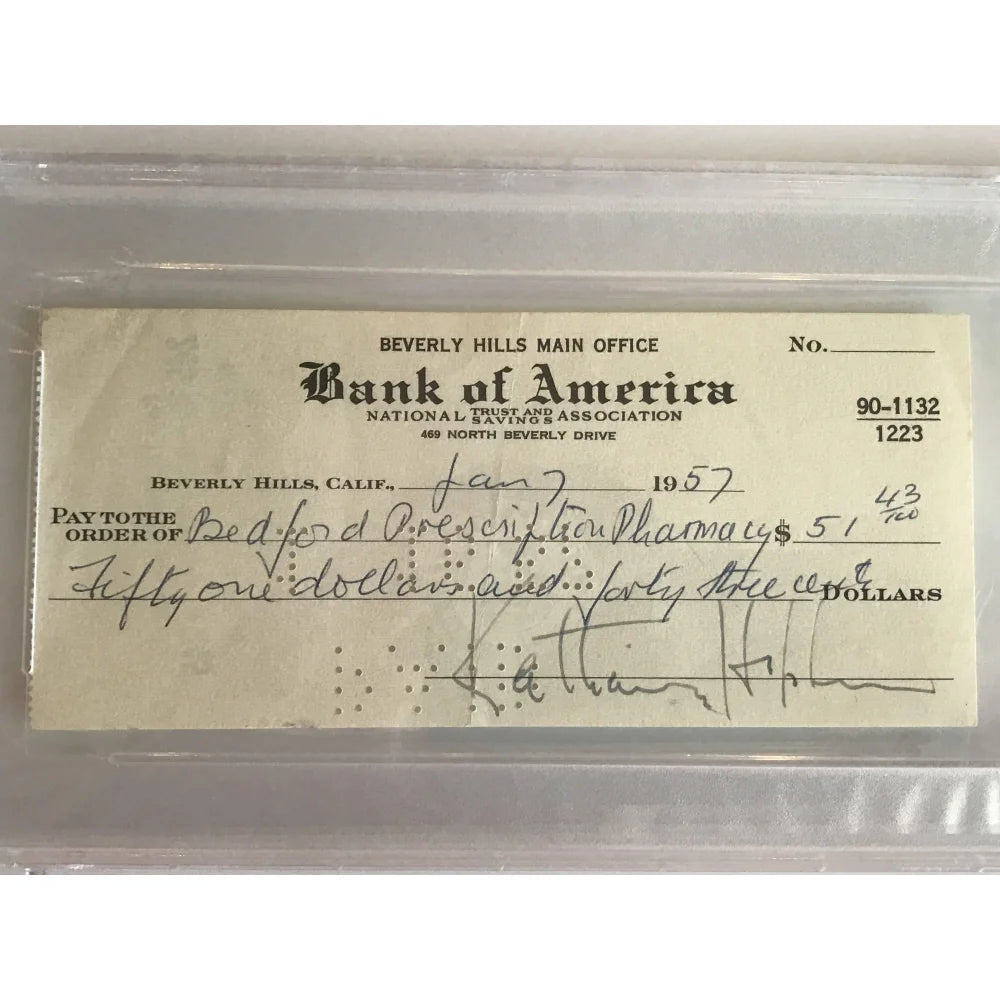 BEVERLY HILLS MAIN OFFICE No.
Bank of America
NATIONAL TRUST AND SAVINGS ASSOCIATION
469 NORTH BEVERLY DRIVE
90-1132
1223
BEVERLY HILLS, CALIF., Jan 7 1957
PAY TO THE ORDER OF Bedford Prescription Pharmacy $ 51 43/100
Fifty one dollars and forty three cents DOLLARS
Katharine Hepburn